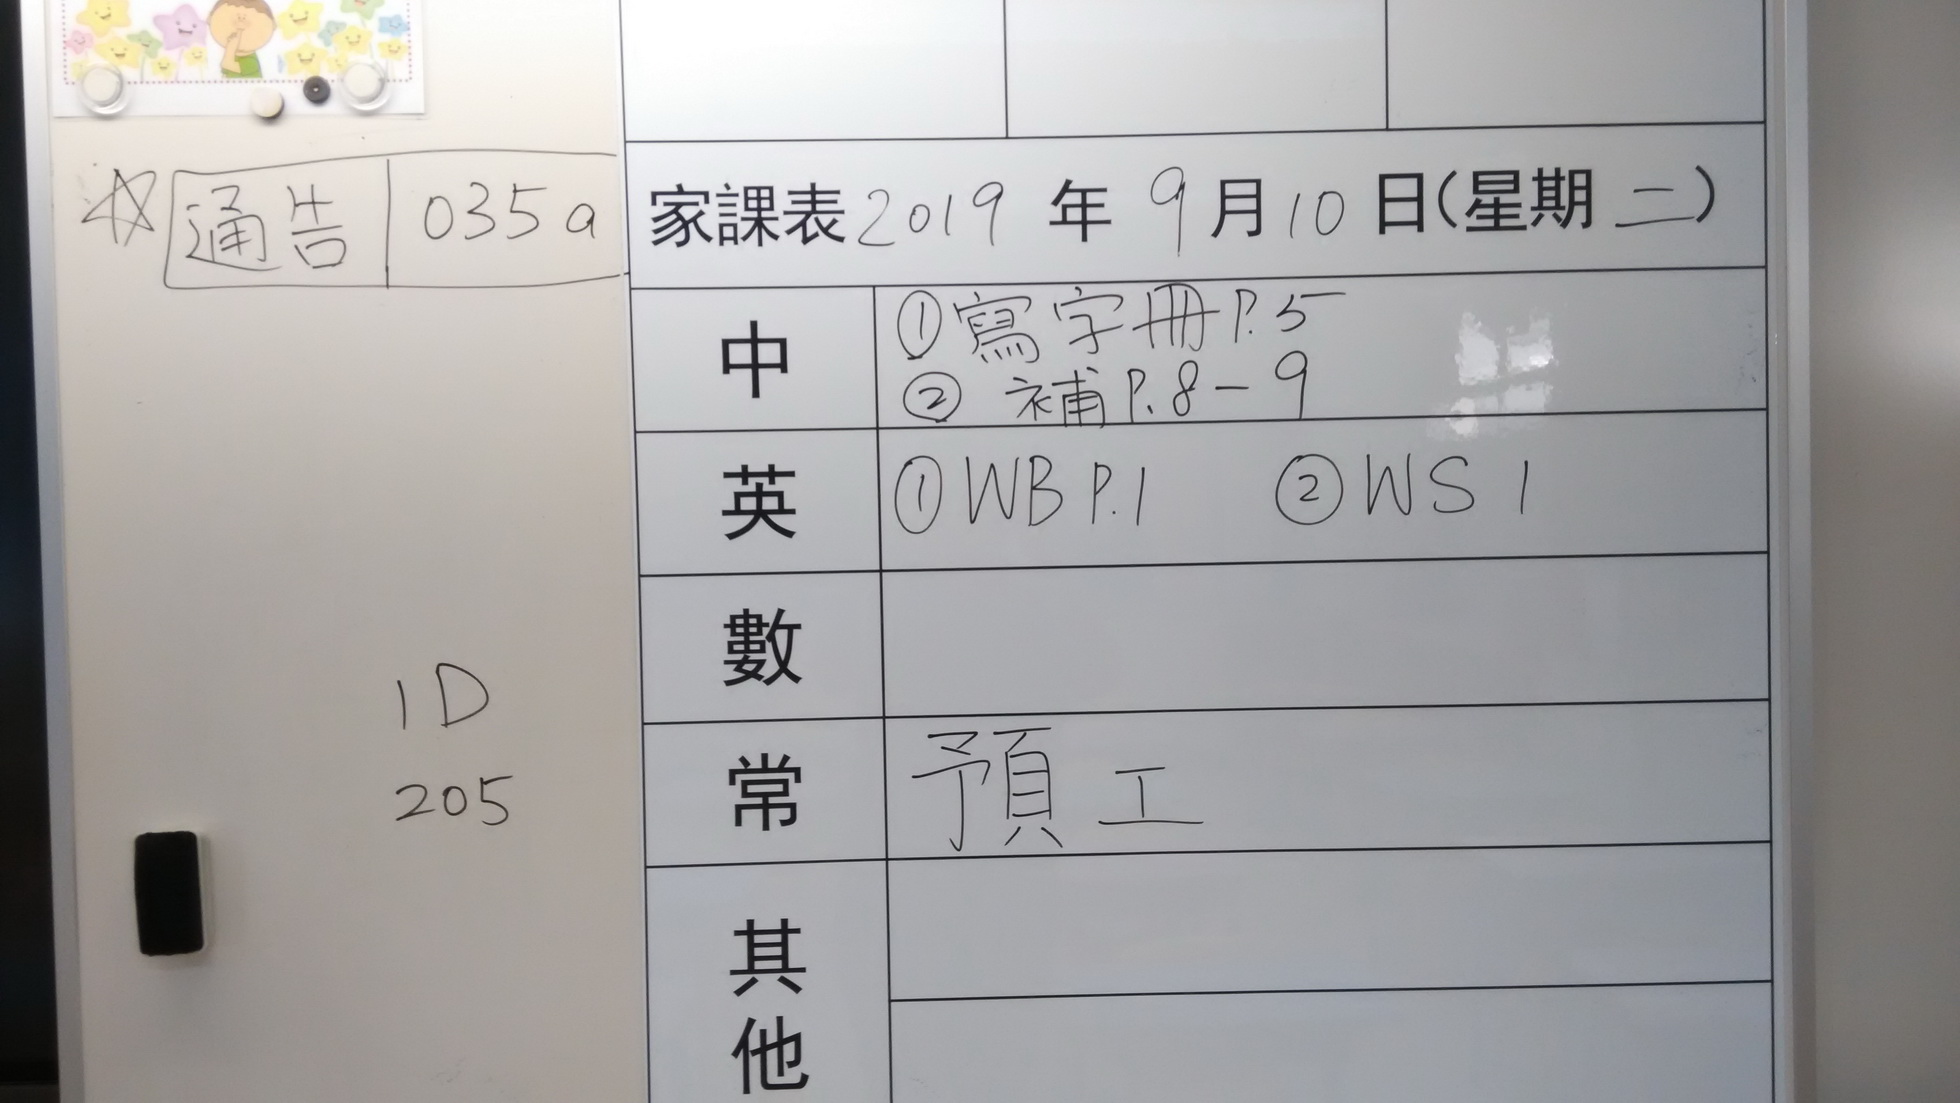 通告 035a
家課表 2019 年 9 月 10 日(星期 二)
中
① 寫字冊 P.5
② 補 P.8-9
英
① WB P.1 ② WS 1
數
1D
常 預工
205
其
他